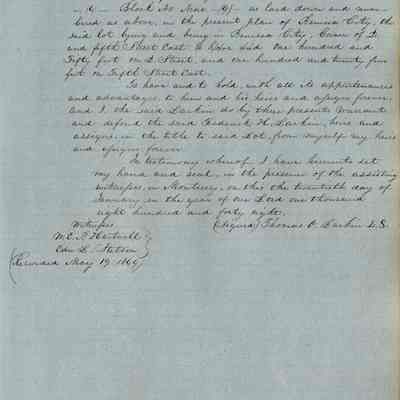 Block No Nine - 9 - as laid down and num-
bered as above, in the present plan of Benicia City, the
said Lot lying and being in Benicia City, Corner of D.
and fifth Street East. to have said one hundred and
Fifty feet on D. Street, and one hundred and twenty five
feet on Fifth Street East.
To have and to hold, with all its appurtenances
and advantages, to him and his heirs and assigns forever
and I the said Larkin do by these presents Warrants
and defend the said Frederick H. Larkin, heirs and
assigns, in the title to said Lot, from myself my heirs
and assigns forever.
In testimony whereof I have hereunto set
my hand and seal, in the presence of the assisting
witnesses, in Monterey, on this the twentieth day of
January, in the year of our Lord one thousand
eight hundred and forty eight.
Witnesses (Signed) Thomas O. Larkin L.S.
W. E. P. Hartnell
(Recorded May 19, 1849)